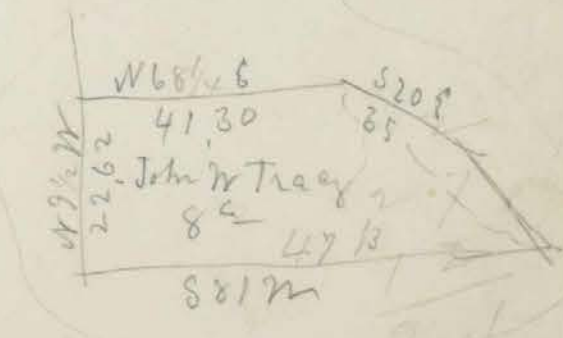 N68¼ E
41,30
S20 E
35
N9½ W
2262
John W Tracy
8 a
47 13
S81 W